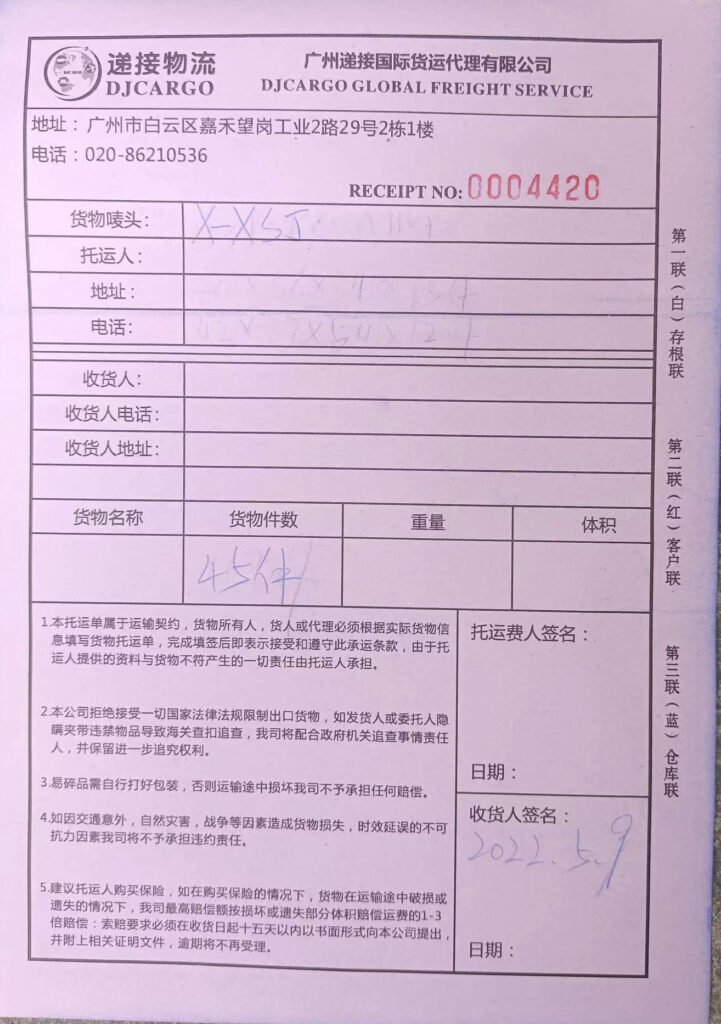 递接物流
DJCARGO
广州递接国际货运代理有限公司
DJCARGO GLOBAL FREIGHT SERVICE
地址：广州市白云区嘉禾望岗工业2路29号2栋1楼
电话：020-86210536
RECEIPT NO: 0004420
货物唛头： X-XSJ
托运人：
地址：
电话：
收货人：
收货人电话：
收货人地址：
货物名称 货物件数 重量 体积
45件
1.本托运单属于运输契约，货物所有人，货人或代理必须根据实际货物信
息填写货物托运单，完成填签后即表示接受和遵守此承运条款，由于托
运人提供的资料与货物不符产生的一切责任由托运人承担。
2.本公司拒绝接受一切国家法律法规限制出口货物，如发货人或委托人隐
瞒夹带违禁物品导致海关查扣追查，我司将配合政府机关追查事情责任
人，并保留进一步追究权利。
3.易碎品需自行打好包装，否则运输途中损坏我司不予承担任何赔偿。
4.如因交通意外，自然灾害，战争等因素造成货物损失，时效延误的不可
抗力因素我司将不予承担违约责任。
5.建议托运人购买保险，如在购买保险的情况下，货物在运输途中破损或
遗失的情况下，我司最高赔偿额按损坏或遗失部分体积赔偿运费的1-3
倍赔偿：索赔要求必须在收货日起十五天以内以书面形式向本公司提出，
并附上相关证明文件，逾期将不再受理。
托运费人签名：
日期：
收货人签名：
2022.5.9
日期：
第一联（白）存根联
第二联（红）客户联
第三联（蓝）仓库联